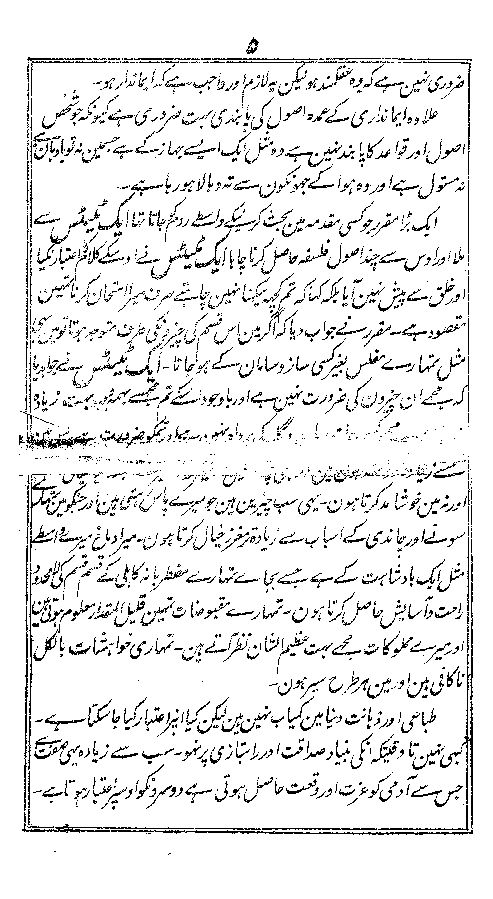 ۵
ضروری نہین ہے کہ وہ عقلمند ہو لیکن یہ لازم اور واجب ہے کہ ایماندار ہو۔
علاوہ ایمانداری کے عمدہ اصول کی پابندی بہت ضروری ہے کیونکہ جو شخص
اصول اور قواعد کا پابند نہین ہے وہ مثل ایک ایسے جہاز کے ہے جسمین نہ تو بادبان ہے
نہ مستول ہے اور وہ ہوا کے جھونکون سے تہ و بالا ہو رہا ہے۔
ایک بڑا مقرر جو کسی مقدمہ مین بحث کرنیکے واسطے روم کو جاتا تھا ایک ٹیٹس سے
ملا اور اوس سے چند اصول فلسفہ حاصل کرنا چاہا ایک ٹیٹس نے اوسکے کلام کا اعتبار نکیا
اور خلق سے پیش نہین آیا بلکہ کہا کہ تم کچھ سیکھنا نہین چاہتے صرف میرا امتحان کرنا تمہین
مقصود ہے۔ مقرر نے جواب دیا کہ اگر مین اس قسم کی چیزونکی طرف متوجہ ہوتا تو مین بھی
مثل تمہارے مفلس بغیر کسی ساز و سامان کے ہو جاتا۔ ایک ٹیٹس نے جواب دیا
کہ مجھے ان چیزون کی ضرورت نہین ہے اور باوجود اسکے تم مجھسے بہت زیادہ
اور نہ مین خوشامد کرتا ہون۔ یہی سب چیزین ہین جو میرے پاس رہتی ہین اور جنکو مین تمہارے
سونے اور چاندی کے اسباب سے زیادہ تر مغز خیال کرتا ہون۔ میرا دماغ میرے واسطے
مثل ایک بادشاہت کے ہے جسے بجاے تمہارے مضطربانہ کاہلی کے قسم قسم کی لامحدود
راحت و آسایش حاصل کرتا ہون۔ تمہارے مقبوضات تمہین قلیل المقدار معلوم ہوتی ہین
اور میرے مملوکات مجھے بہت عظیم الشان نظر آتے ہین۔ تمہاری خواہشات بالکل
ناکافی ہین اور مین ہر طرح سیر ہون۔
طباعی اور ذہانت دنیا مین کمیاب نہین ہین لیکن کیا انپر اعتبار کیا جا سکتا ہے۔
کبھی نہین تا وقتیکہ انکی بنیاد صداقت اور راستبازی پر نہو۔ سب سے زیادہ یہی صفت ہے
جس سے آدمی کو عزت اور وقعت حاصل ہوتی ہے دوسرونکو اوسپر اعتبار ہوتا ہے۔